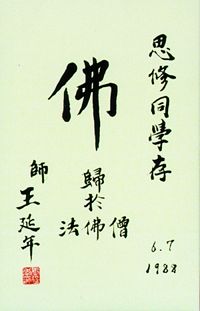 思修同學存
6.7
1988
佛
歸於佛
法
僧
師 王延年